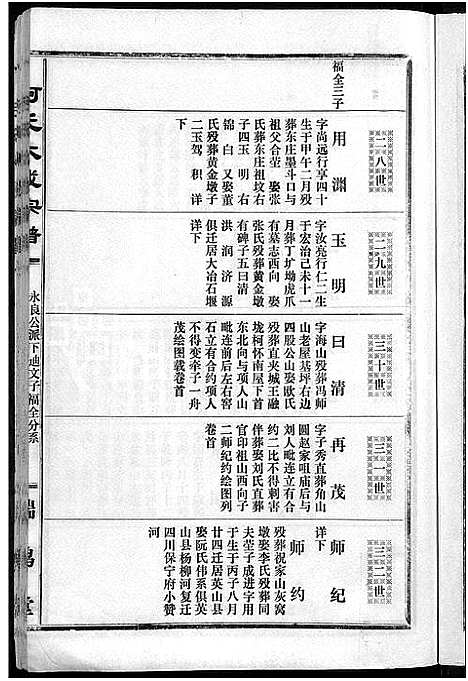 福全三子
二八世
用渊
字尚远行享四十
生于甲午二月殁
葬东庄墨斗口与
祖父合茔 娶张
氏葬东庄祖坟右
子四玉 明 右
锦 白 又娶董
氏殁葬黄金墩子
二玉驾 积 详
下
二九世
玉明
字汝亮行仁二生
于宏治己未十一
月葬丁圹坳虎爪
有墓志西向 娶
张氏殁葬黄金墩
有碑子五曰清
洪 润 济 源
俱迁居大冶石堰
详下
三十世
曰清
字海山殁葬冯师
山老屋基坪右边
四股公山娶欧氏
殁葬直夹城王融
垅柯怀南屋下首
东北向与项人山
毗连前后左右窖
石立有合约项人
不得变牟子一舟
茂绘图载卷首
三一世
再茂
字子秀直葬角山
圆赵家咀庙后与
刘人毗连立有合
约二比不得刺害
伴葬娶刘氏直葬
官印祖山西向子
二师纪约绘图列
卷首
三二世
师纪
详下
师约
殁葬祝家山灰窝
墩娶李氏殁葬同
夫茔子成进字用
于生于丙子八月
廿四迁居英山县
娶阮氏伟系俱英
山县杨柳河复迁
四川保宁府小赞
河
宗谱
永良公派下迪文子福全分系
堂